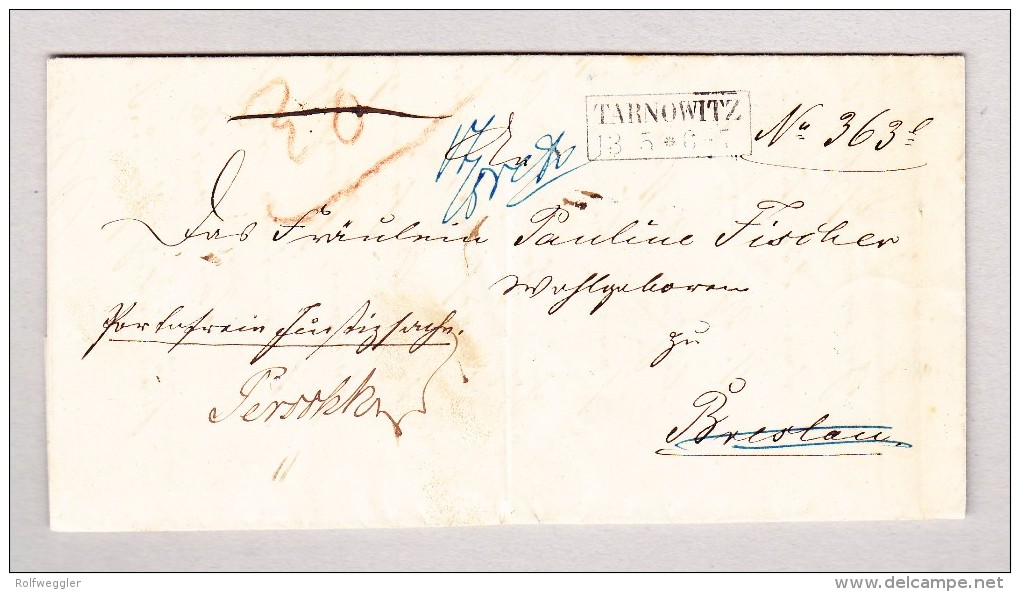 30
TARNOWITZ
13 5 * 6-7
No 363
An
Das Fräulein Pauline Fischer
Wohlgeboren
Portofreie Justizsache.
zu
Breslau.
Rolfweggler
www.delcampe.net